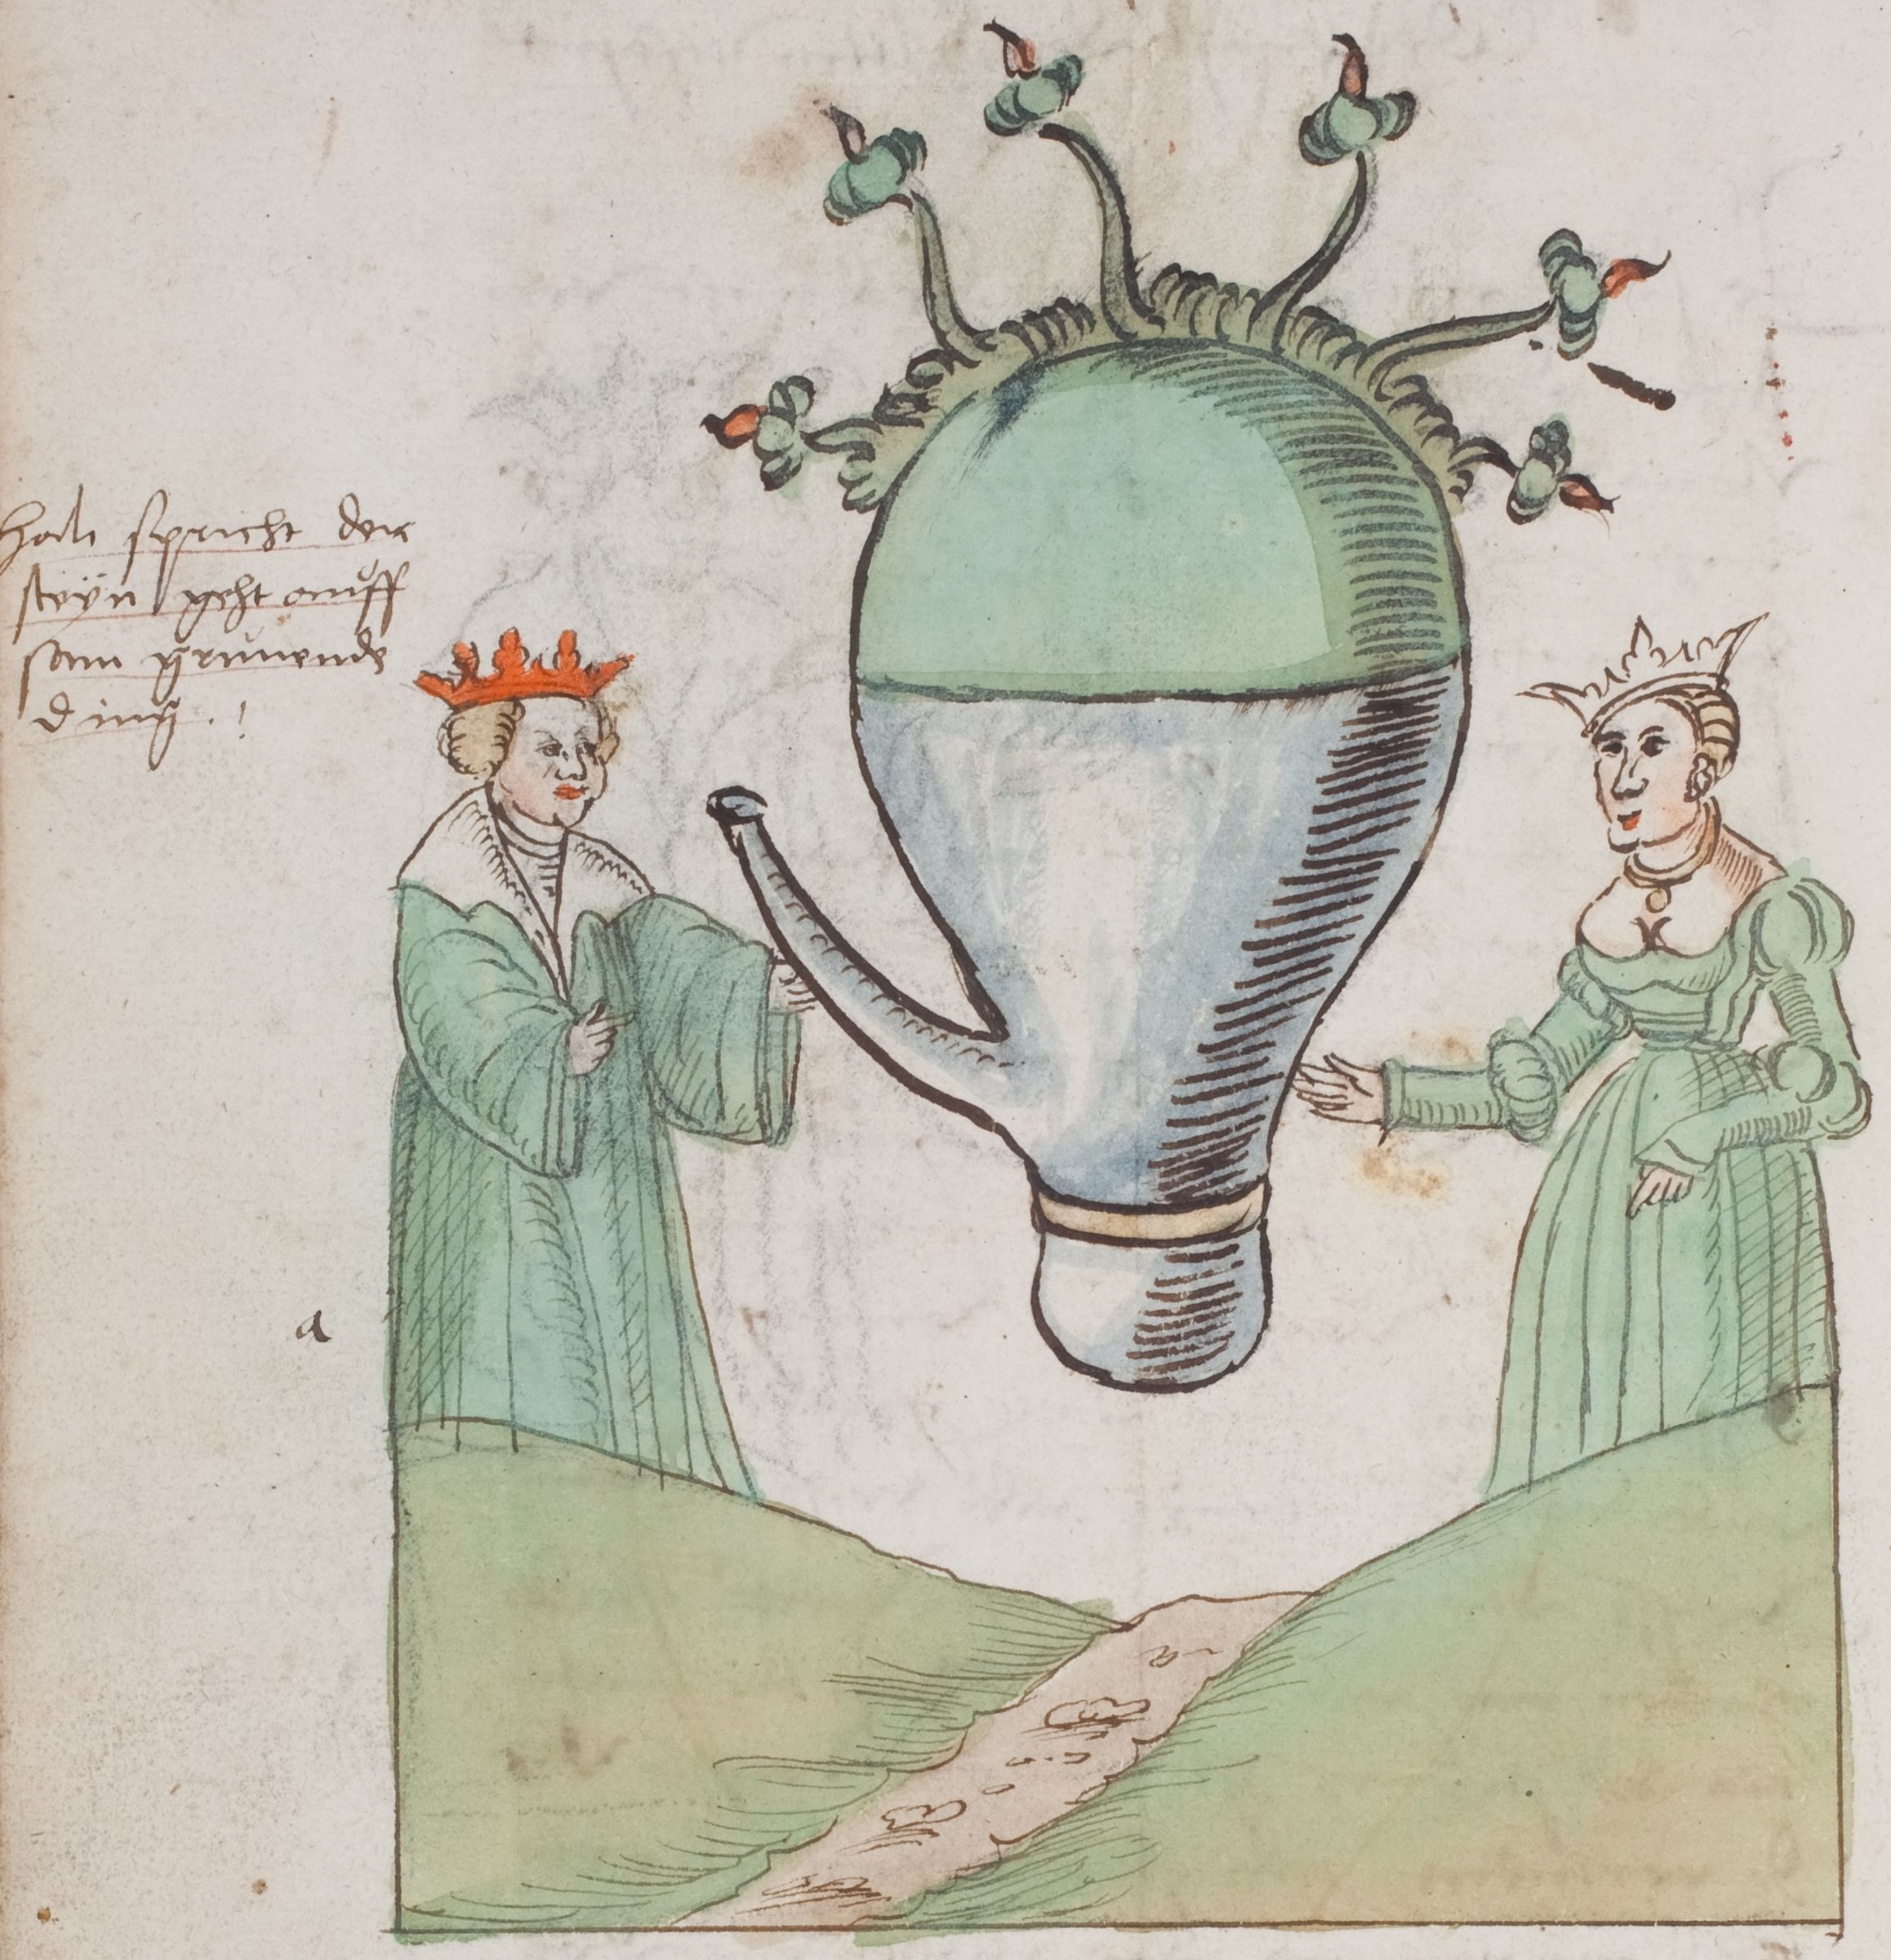 Hali spricht der
steÿn geht auff
sam grunende
ding .
a